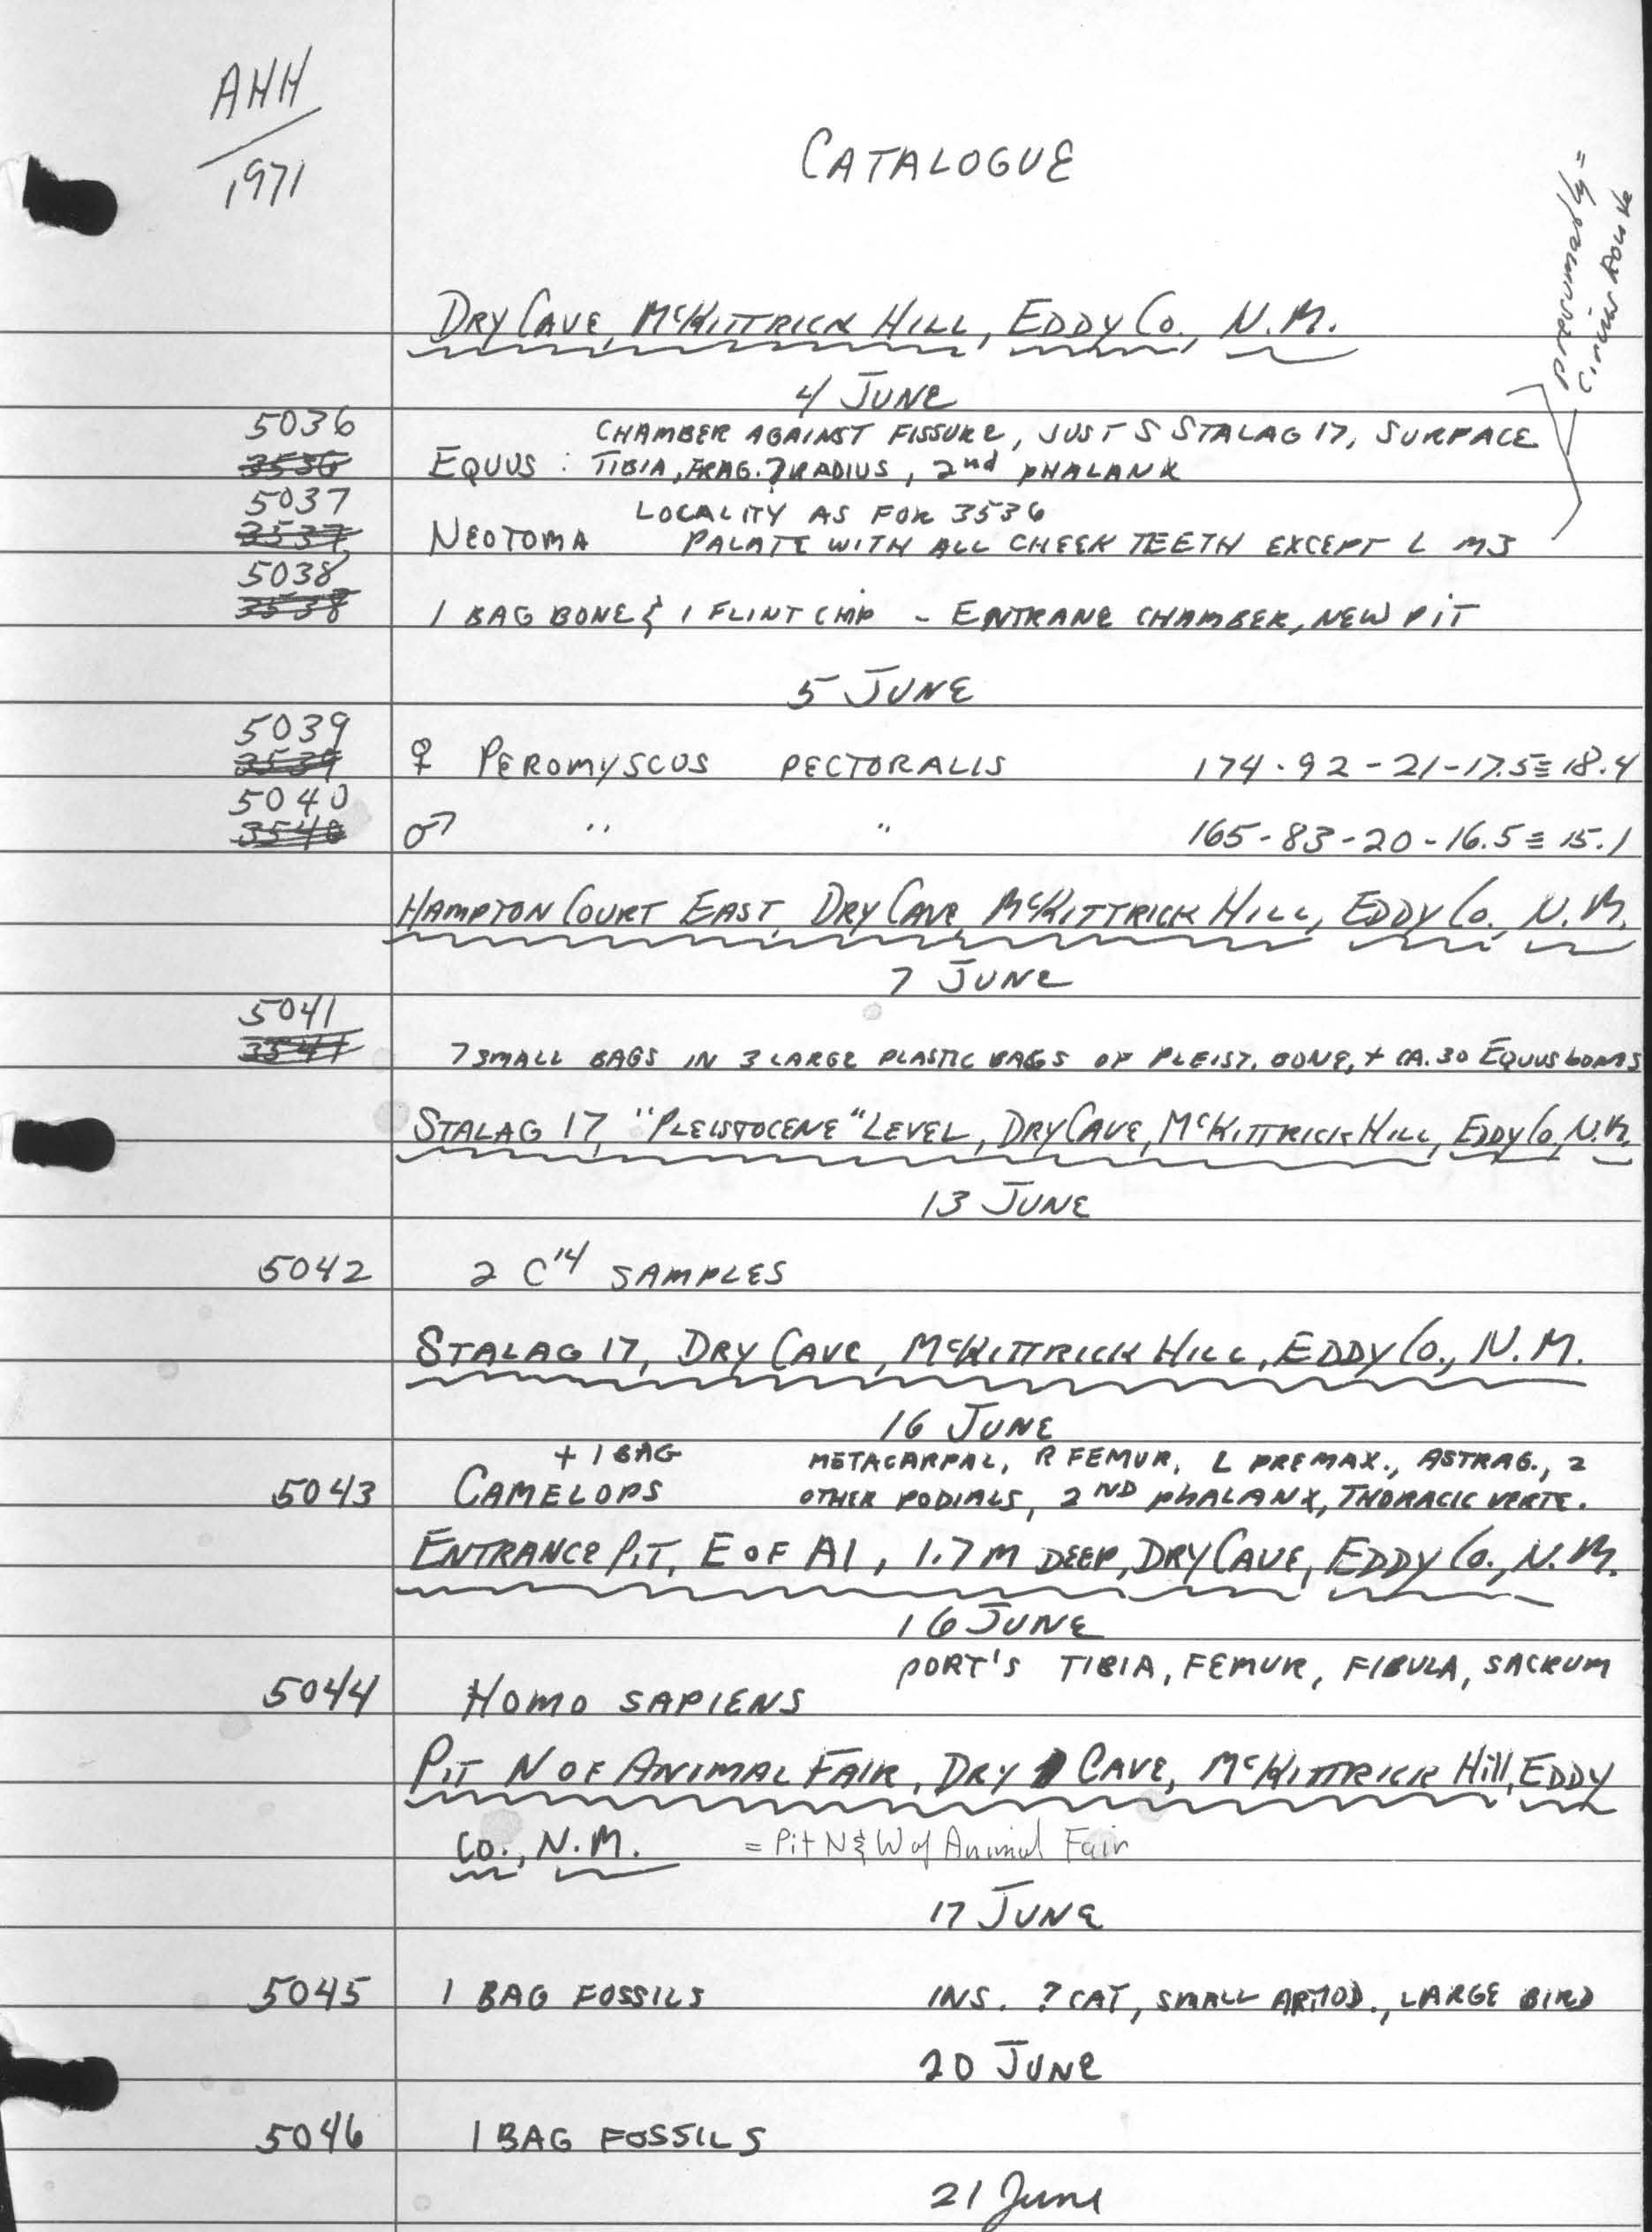 AHH
1971
CATALOGUE
presumably =
Camel Route
DRY CAVE, McKITTRICK HILL, EDDY CO., N.M.
4 JUNE
5036
CHAMBER AGAINST FISSURE, JUST S STALAG 17, SURFACE
3536
EQUUS : TIBIA, FRAG. ?RADIUS, 2nd PHALANX
5037
LOCALITY AS FOR 3536
3537
NEOTOMA PALATE WITH ALL CHEEK TEETH EXCEPT L M3
5038
3538
1 BAG BONE & 1 FLINT CHIP - ENTRANE CHAMBER, NEW PIT
5 JUNE
5039
3539
♀ PEROMYSCUS PECTORALIS 174-92-21-17.5≡18.4
5040
3540
♂ " " 165-83-20-16.5≡15.1
HAMPTON COURT EAST, DRY CAVE, McKITTRICK HILL, EDDY CO., N.M.
7 JUNE
5041
3541
7 SMALL BAGS IN 3 LARGE PLASTIC BAGS OF PLEIST. BONE, + CA. 30 EQUUS bones
STALAG 17, "PLEISTOCENE" LEVEL, DRY CAVE, McKITTRICK HILL, EDDY CO, N.M.
13 JUNE
5042 2 C14 SAMPLES
STALAG 17, DRY CAVE, McKITTRICK HILL, EDDY CO., N.M.
16 JUNE
+ 1 BAG METACARPAL, R FEMUR, L PREMAX., ASTRAG., 2
5043 CAMELOPS OTHER PODIALS, 2ND PHALANX, THORACIC VERTE.
ENTRANCE PIT, E OF A1, 1.7 M DEEP, DRY CAVE, EDDY CO., N.M.
16 JUNE
PORT'S TIBIA, FEMUR, FIBULA, SACRUM
5044 HOMO SAPIENS
PIT N OF ANIMAL FAIR, DRY CAVE, McKITTRICK Hill, EDDY
CO., N.M. = Pit N & W of Animal Fair
17 JUNE
5045 1 BAG FOSSILS INS. ?CAT, SMALL ARTIOD., LARGE BIRD
20 JUNE
5046 1 BAG FOSSILS
21 June